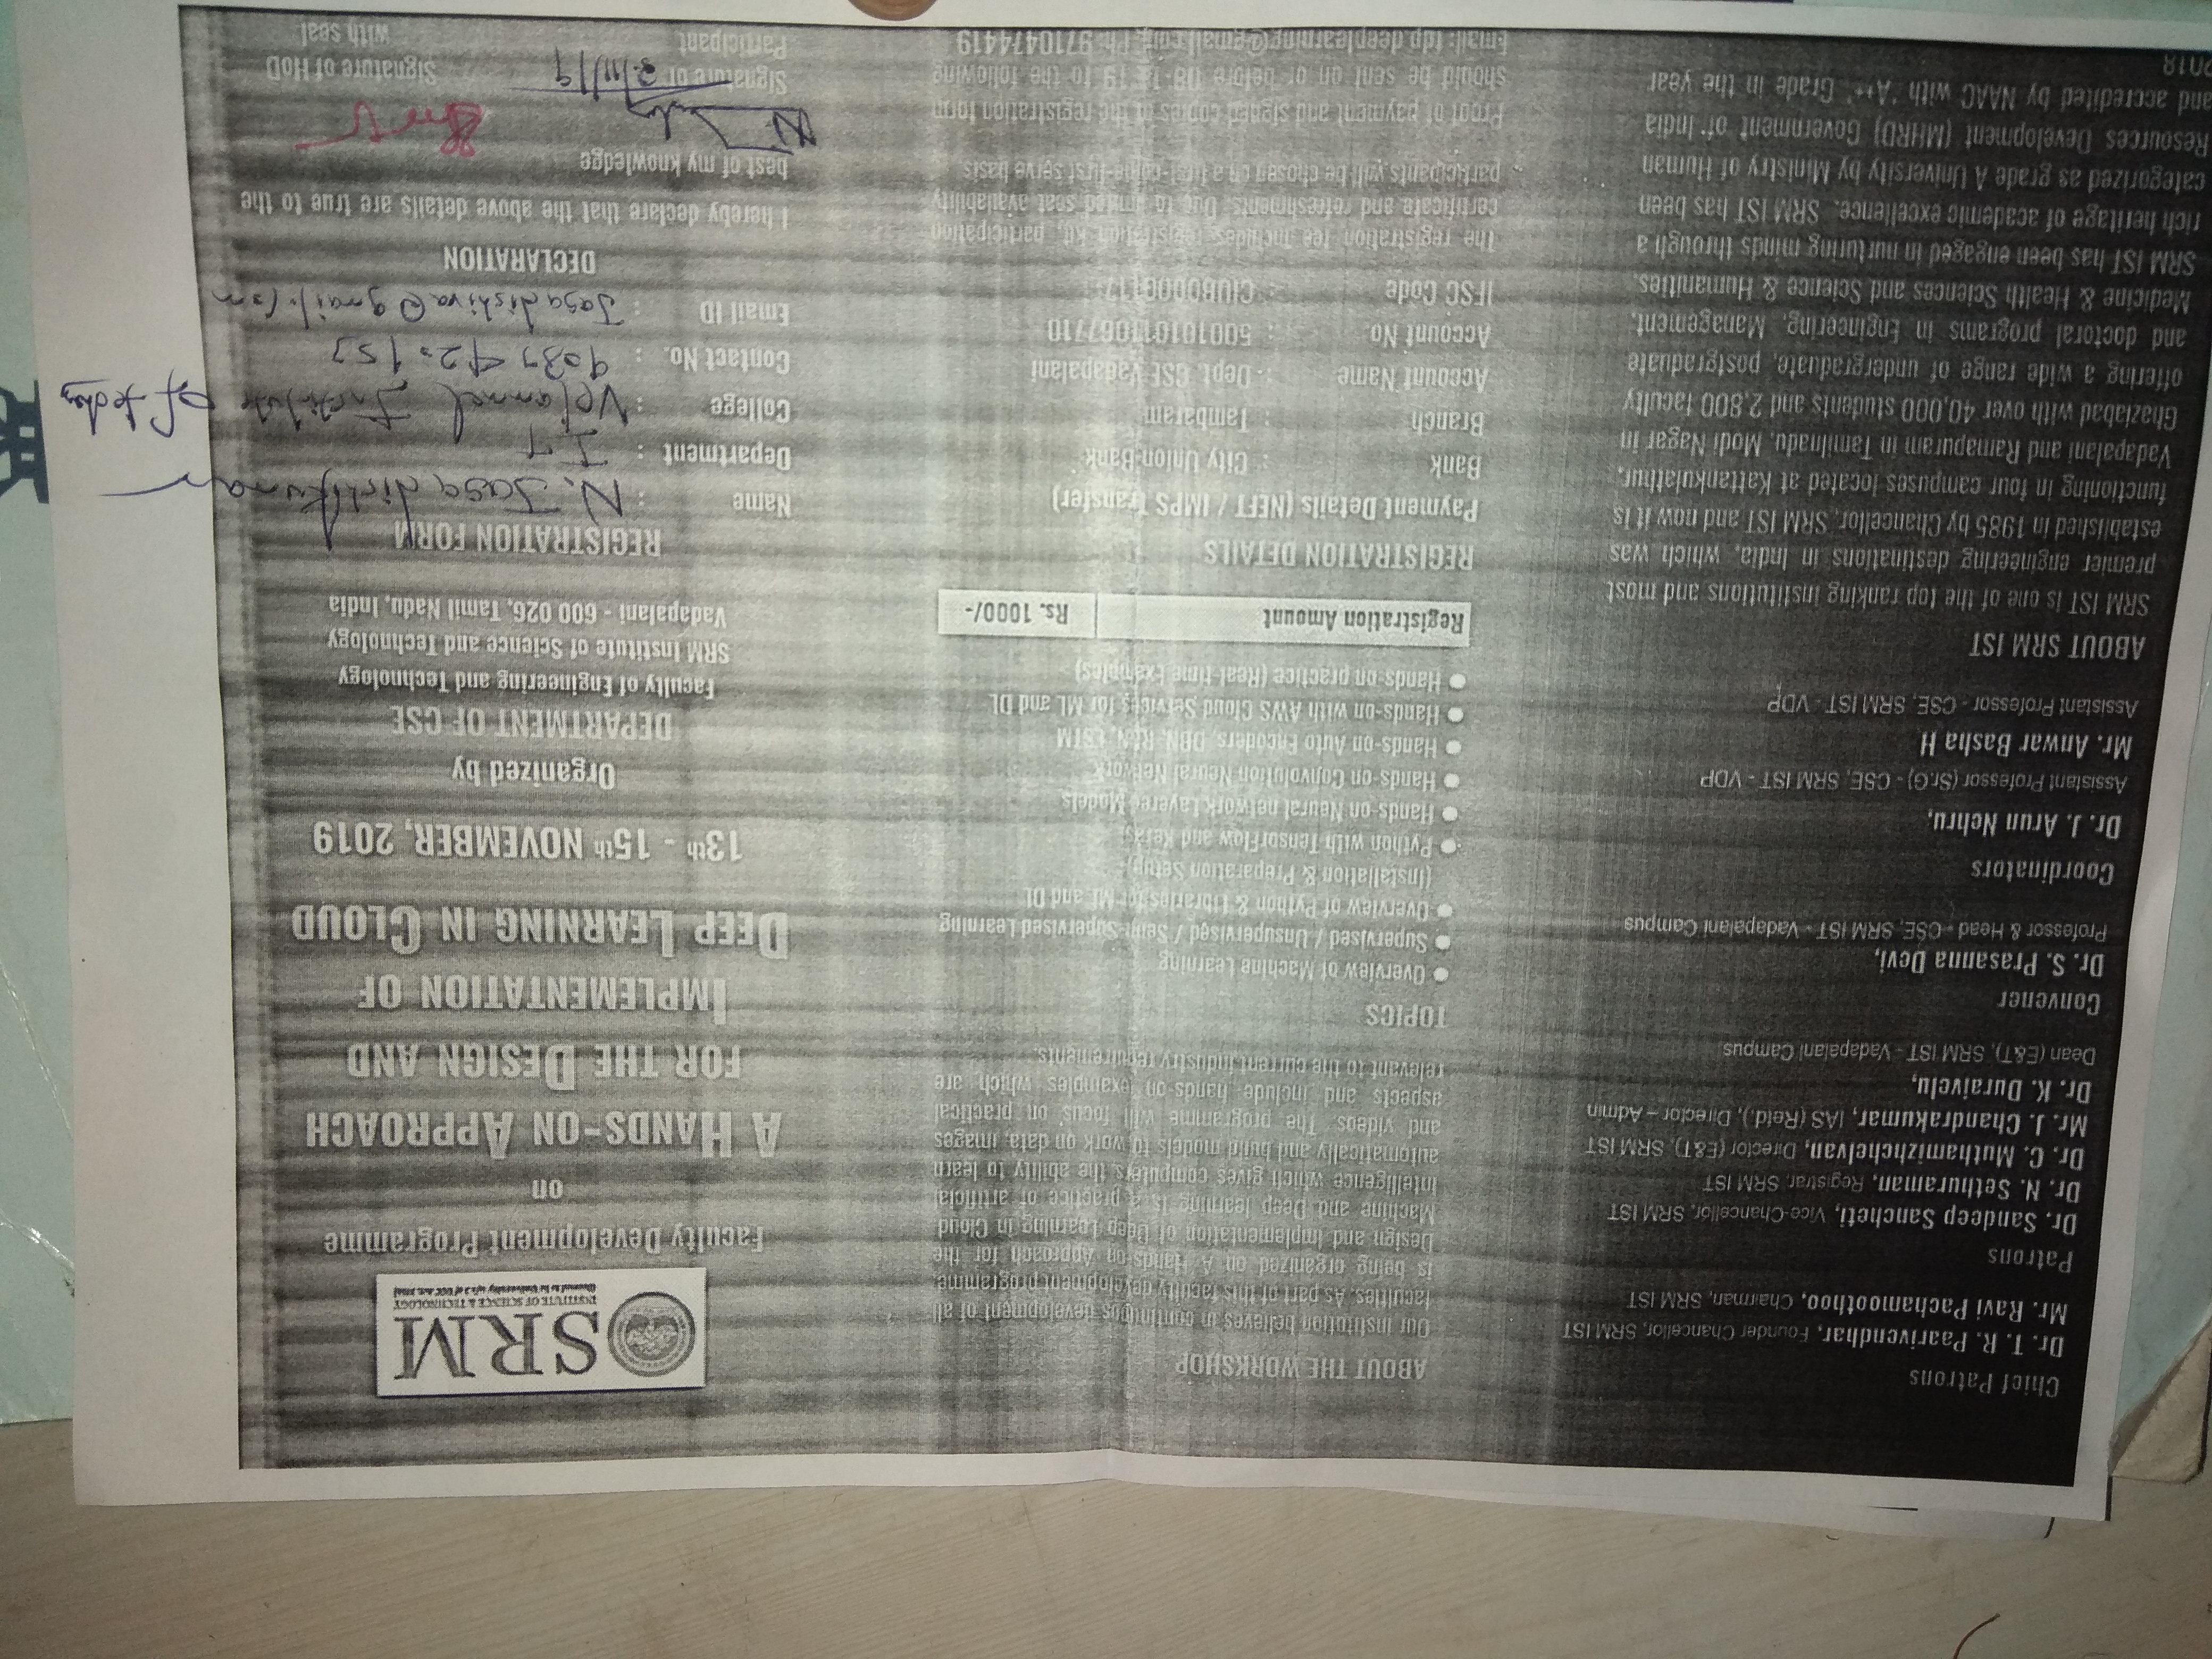 Chief Patrons
Dr. T. R. Paarivendhar, Founder Chancellor, SRM IST
Mr. Ravi Pachamoothoo, Chairman, SRM IST
Patrons
Dr. Sandeep Sancheti, Vice-Chancellor, SRM IST
Dr. N. Sethuraman, Registrar, SRM IST
Dr. C. Muthamizhchelvan, Director (E&T), SRM IST
Mr. J. Chandrakumar, IAS (Retd.), Director – Admin
Dr. K. Duraivelu,
Dean (E&T), SRM IST - Vadapalani Campus
Convener
Dr. S. Prasanna Devi,
Professor & Head - CSE, SRM IST - Vadapalani Campus
Coordinators
Dr. J. Arun Nehru,
Assistant Professor (Sr.G) - CSE, SRM IST - VDP
Mr. Anwar Basha H
Assistant Professor - CSE, SRM IST - VDP
ABOUT SRM IST
SRM IST is one of the top ranking institutions and most
premier engineering destinations in India, which was
established in 1985 by Chancellor, SRM IST and now it is
functioning in four campuses located at Kattankulathur,
Vadapalani and Ramapuram in Tamilnadu, Modi Nagar in
Ghaziabad with over 40,000 students and 2,800 faculty
offering a wide range of undergraduate, postgraduate
and doctoral programs in Engineering, Management,
Medicine & Health Sciences and Science & Humanities.
SRM IST has been engaged in nurturing minds through a
rich heritage of academic excellence. SRM IST has been
categorized as grade A University by Ministry of Human
Resources Development (MHRD) Government of India
and accredited by NAAC with 'A++' Grade in the year
2018
ABOUT THE WORKSHOP
Our institution believes in continuous development of all
faculties. As part of this faculty development programme
is being organized on A Hands-on Approach for the
Design and Implementation of Deep Learning in Cloud
Machine and Deep learning is a practice of artificial
intelligence which gives computers the ability to learn
automatically and build models to work on data, images
and videos. The programme will focus on practical
aspects and include hands-on examples which are
relevant to the current industry requirements.
TOPICS
● Overview of Machine Learning
● Supervised / Unsupervised / Semi-Supervised Learning
● Overview of Python & Libraries for ML and DL
(Installation & Preparation Setup)
● Python with TensorFlow and Keras
● Hands-on Neural network Layered Models
● Hands-on Convolution Neural Network
● Hands-on Auto Encoders, DBN, RNN, LSTM
● Hands-on with AWS Cloud Services for ML and DL
● Hands-on practice (Real-time Examples)
Registration Amount Rs. 1000/-
REGISTRATION DETAILS
Payment Details (NEFT / IMPS Transfer)
Bank : City Union Bank
Branch : Tambaram
Account Name : Dept. CSE Vadapalani
Account No. : 500101011067710
IFSC Code : CIUB0000117
The registration fee includes registration kit, participation
certificate and refreshments. Due to limited seat availability
participants will be chosen on a first-come-first serve basis
Proof of payment and signed copies of the registration form
should be sent on or before 08-11-19 to the following
Email: fdp.deeplearning@gmail.com, Ph: 9710474419
SRM
INSTITUTE OF SCIENCE & TECHNOLOGY
(Deemed to be University u/s 3 of UGC Act, 1956)
Faculty Development Programme
on
A HANDS-ON APPROACH
FOR THE DESIGN AND
IMPLEMENTATION OF
DEEP LEARNING IN CLOUD
13th - 15th NOVEMBER, 2019
Organized by
DEPARTMENT OF CSE
Faculty of Engineering and Technology
SRM Institute of Science and Technology
Vadapalani - 600 026, Tamil Nadu, India
REGISTRATION FORM
Name : N. Jagadishkumar
Department : IT
College : Velammal Institute of
Contact No. :
Email ID : Jagadishiva@gmail.com
DECLARATION
I hereby declare that the above details are true to the
best of my knowledge
8/11/19
Signature of Signature of HoD
Participant with seal